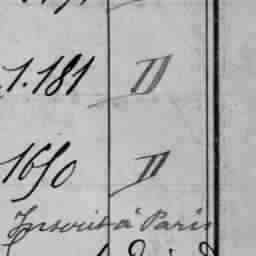 1.181 II
1650 II
Inscrit à Paris